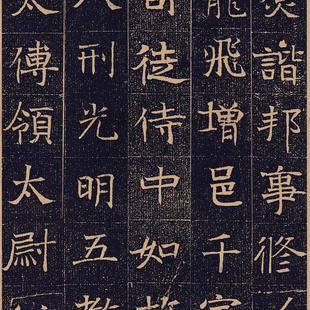 諧邦事修
龍飛增邑千
司徒侍中如故
八刑光明五教
太傅領太尉